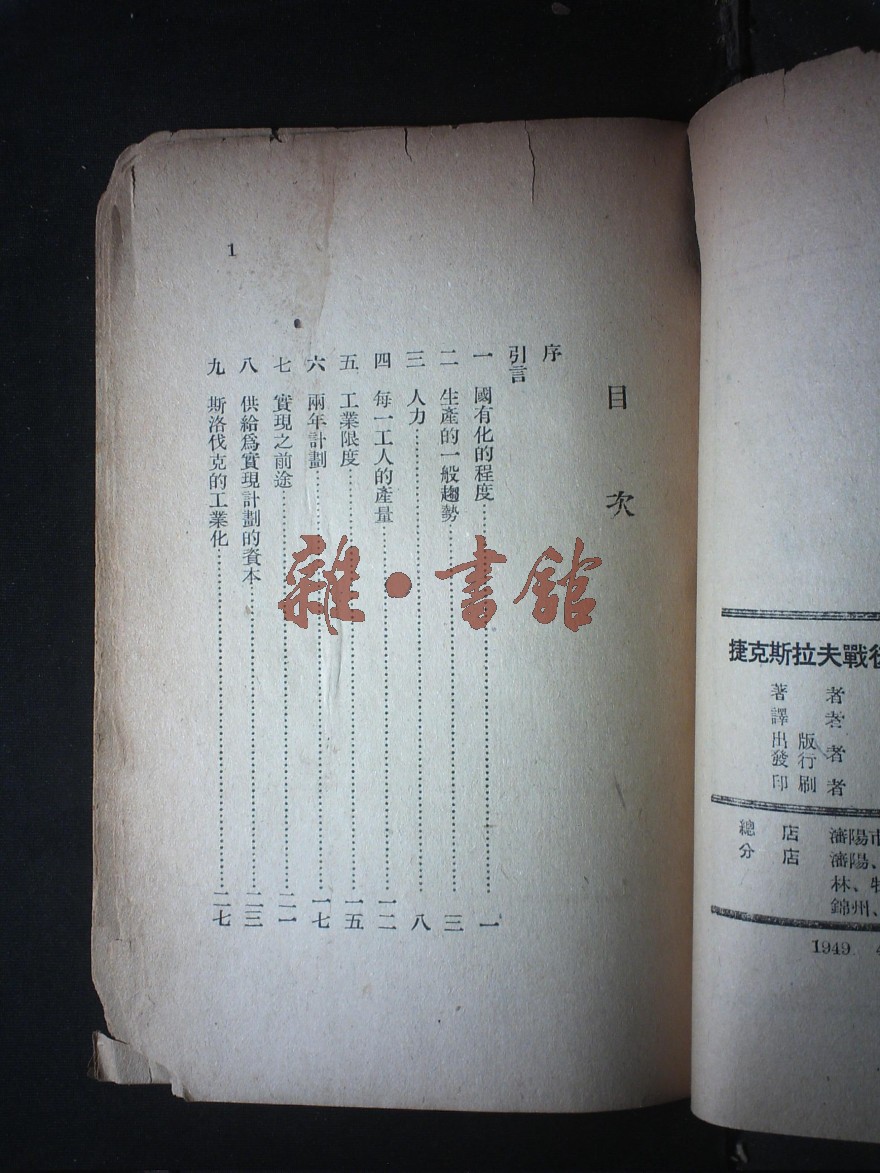 目次
序
引言
一 國有化的程度……一
二 生產的一般趨勢……三
三 人力……八
四 每一工人的產量……一二
五 工業限度……一五
六 兩年計劃……一七
七 實現之前途……二一
八 供給爲實現計劃的資本……二三
九 斯洛伐克的工業化……二七
1
雜·書館
捷克斯拉夫戰後
著者
譯者
出版者
發行
印刷者
總店 瀋陽市
分店 瀋陽、
林、
錦州、
1949. 4